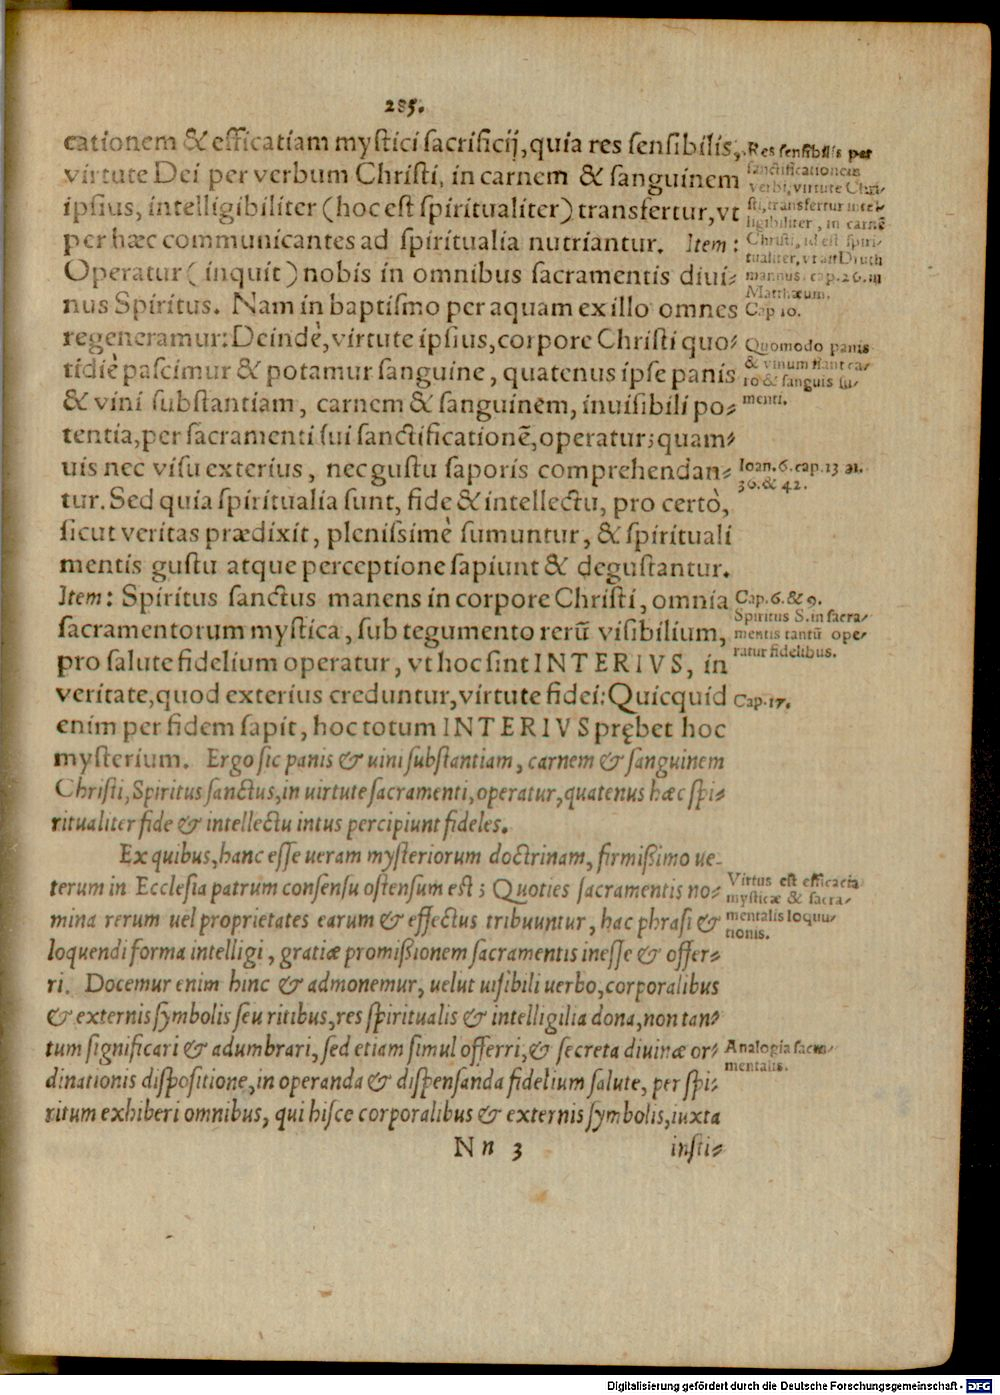 285.
cationem & efficatiam mystici sacrificij, quia res sensibilis,
virtute Dei per verbum Christi, in carnem & sanguinem
ipsius, intelligibiliter (hoc est spiritualiter) transfertur, vt
per hæc communicantes ad spiritualia nutriantur. Item:
Operatur (inquit) nobis in omnibus sacramentis diui-
nus Spiritus. Nam in baptismo per aquam ex illo omnes
regeneramur: Deindè, virtute ipsius, corpore Christi quo-
tidiè pascimur & potamur sanguine, quatenus ipse panis
& vini substantiam, carnem & sanguinem, inuisibili po-
tentia, per sacramenti sui sanctificationē, operatur; quam-
uis nec visu exterius, nec gustu saporis comprehendan-
tur. Sed quia spiritualia sunt, fide & intellectu, pro certò,
sicut veritas prædixit, plenissimè sumuntur, & spirituali
mentis gustu atque perceptione sapiunt & degustantur.
Item: Spiritus sanctus manens in corpore Christi, omnia
sacramentorum mystica, sub tegumento rerū visibilium,
pro salute fidelium operatur, vt hoc sint INTERIVS, in
veritate, quod exterius creduntur, virtute fidei: Quicquid
enim per fidem sapit, hoc totum INTERIVS prębet hoc
mysterium. Ergo sic panis & uini substantiam, carnem & sanguinem
Christi, Spiritus sanctus, in uirtute sacramenti, operatur, quatenus hæc spi-
ritualiter fide & intellectu intus percipiunt fideles.
Ex quibus, hanc esse ueram mysteriorum doctrinam, firmißimo ue-
terum in Ecclesia patrum consensu ostensum est; Quoties sacramentis no-
mina rerum uel proprietates earum & effectus tribuuntur, hac phrasi &
loquendi forma intelligi, gratiæ promißionem sacramentis inesse & offer-
ri. Docemur enim hinc & admonemur, uelut uisibili uerbo, corporalibus
& externis symbolis seu ritibus, res spiritualis & intelligilia dona, non tan-
tum significari & adumbrari, sed etiam simul offerri, & secreta diuinæ or-
dinationis dispositione, in operanda & dispensanda fidelium salute, per spi-
ritum exhiberi omnibus, qui hisce corporalibus & externis symbolis, iuxta
N n 3 insti-
Res sensibilis per
sanctificationem
verbi, virtute Chri-
sti, transfertur intel-
ligibiliter, in carnē
Christi, id est spiri-
tualiter, vt ait Druth
mannus. cap. 26. in
Matthæum.
Cap 10.
Quomodo panis
& vinum fiant ca-
ro & sanguis su-
menti.
Ioan. 6. cap. 13 21.
36. & 42.
Cap. 6. & 9.
Spiritus S. in sacra-
mentis tantū ope-
ratur fidelibus.
Cap. 17.
Virtus est efficacia
mysticæ & sacra-
mentalis loquu-
tionis.
Analogia sacra-
mentalis.
Digitalisierung gefördert durch die Deutsche Forschungsgemeinschaft - DFG